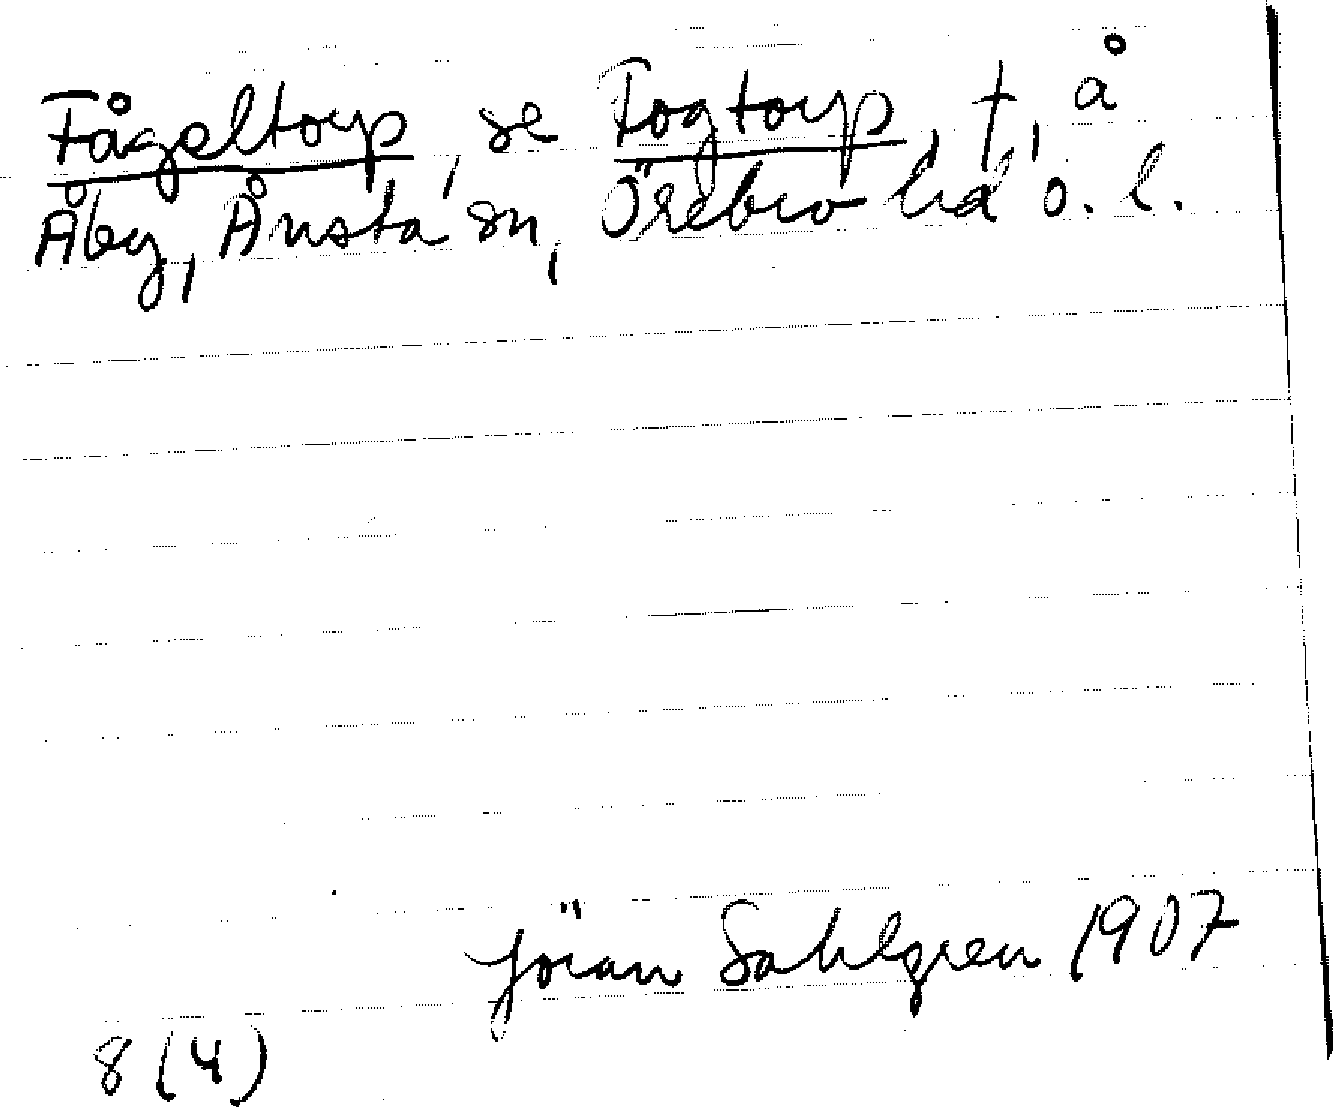 Fågeltorp, se Fogtorp, t, å
Åby, Ånsta sn, Örebro hd ö. l.
Jöran Sahlgren 1907
8 (4)